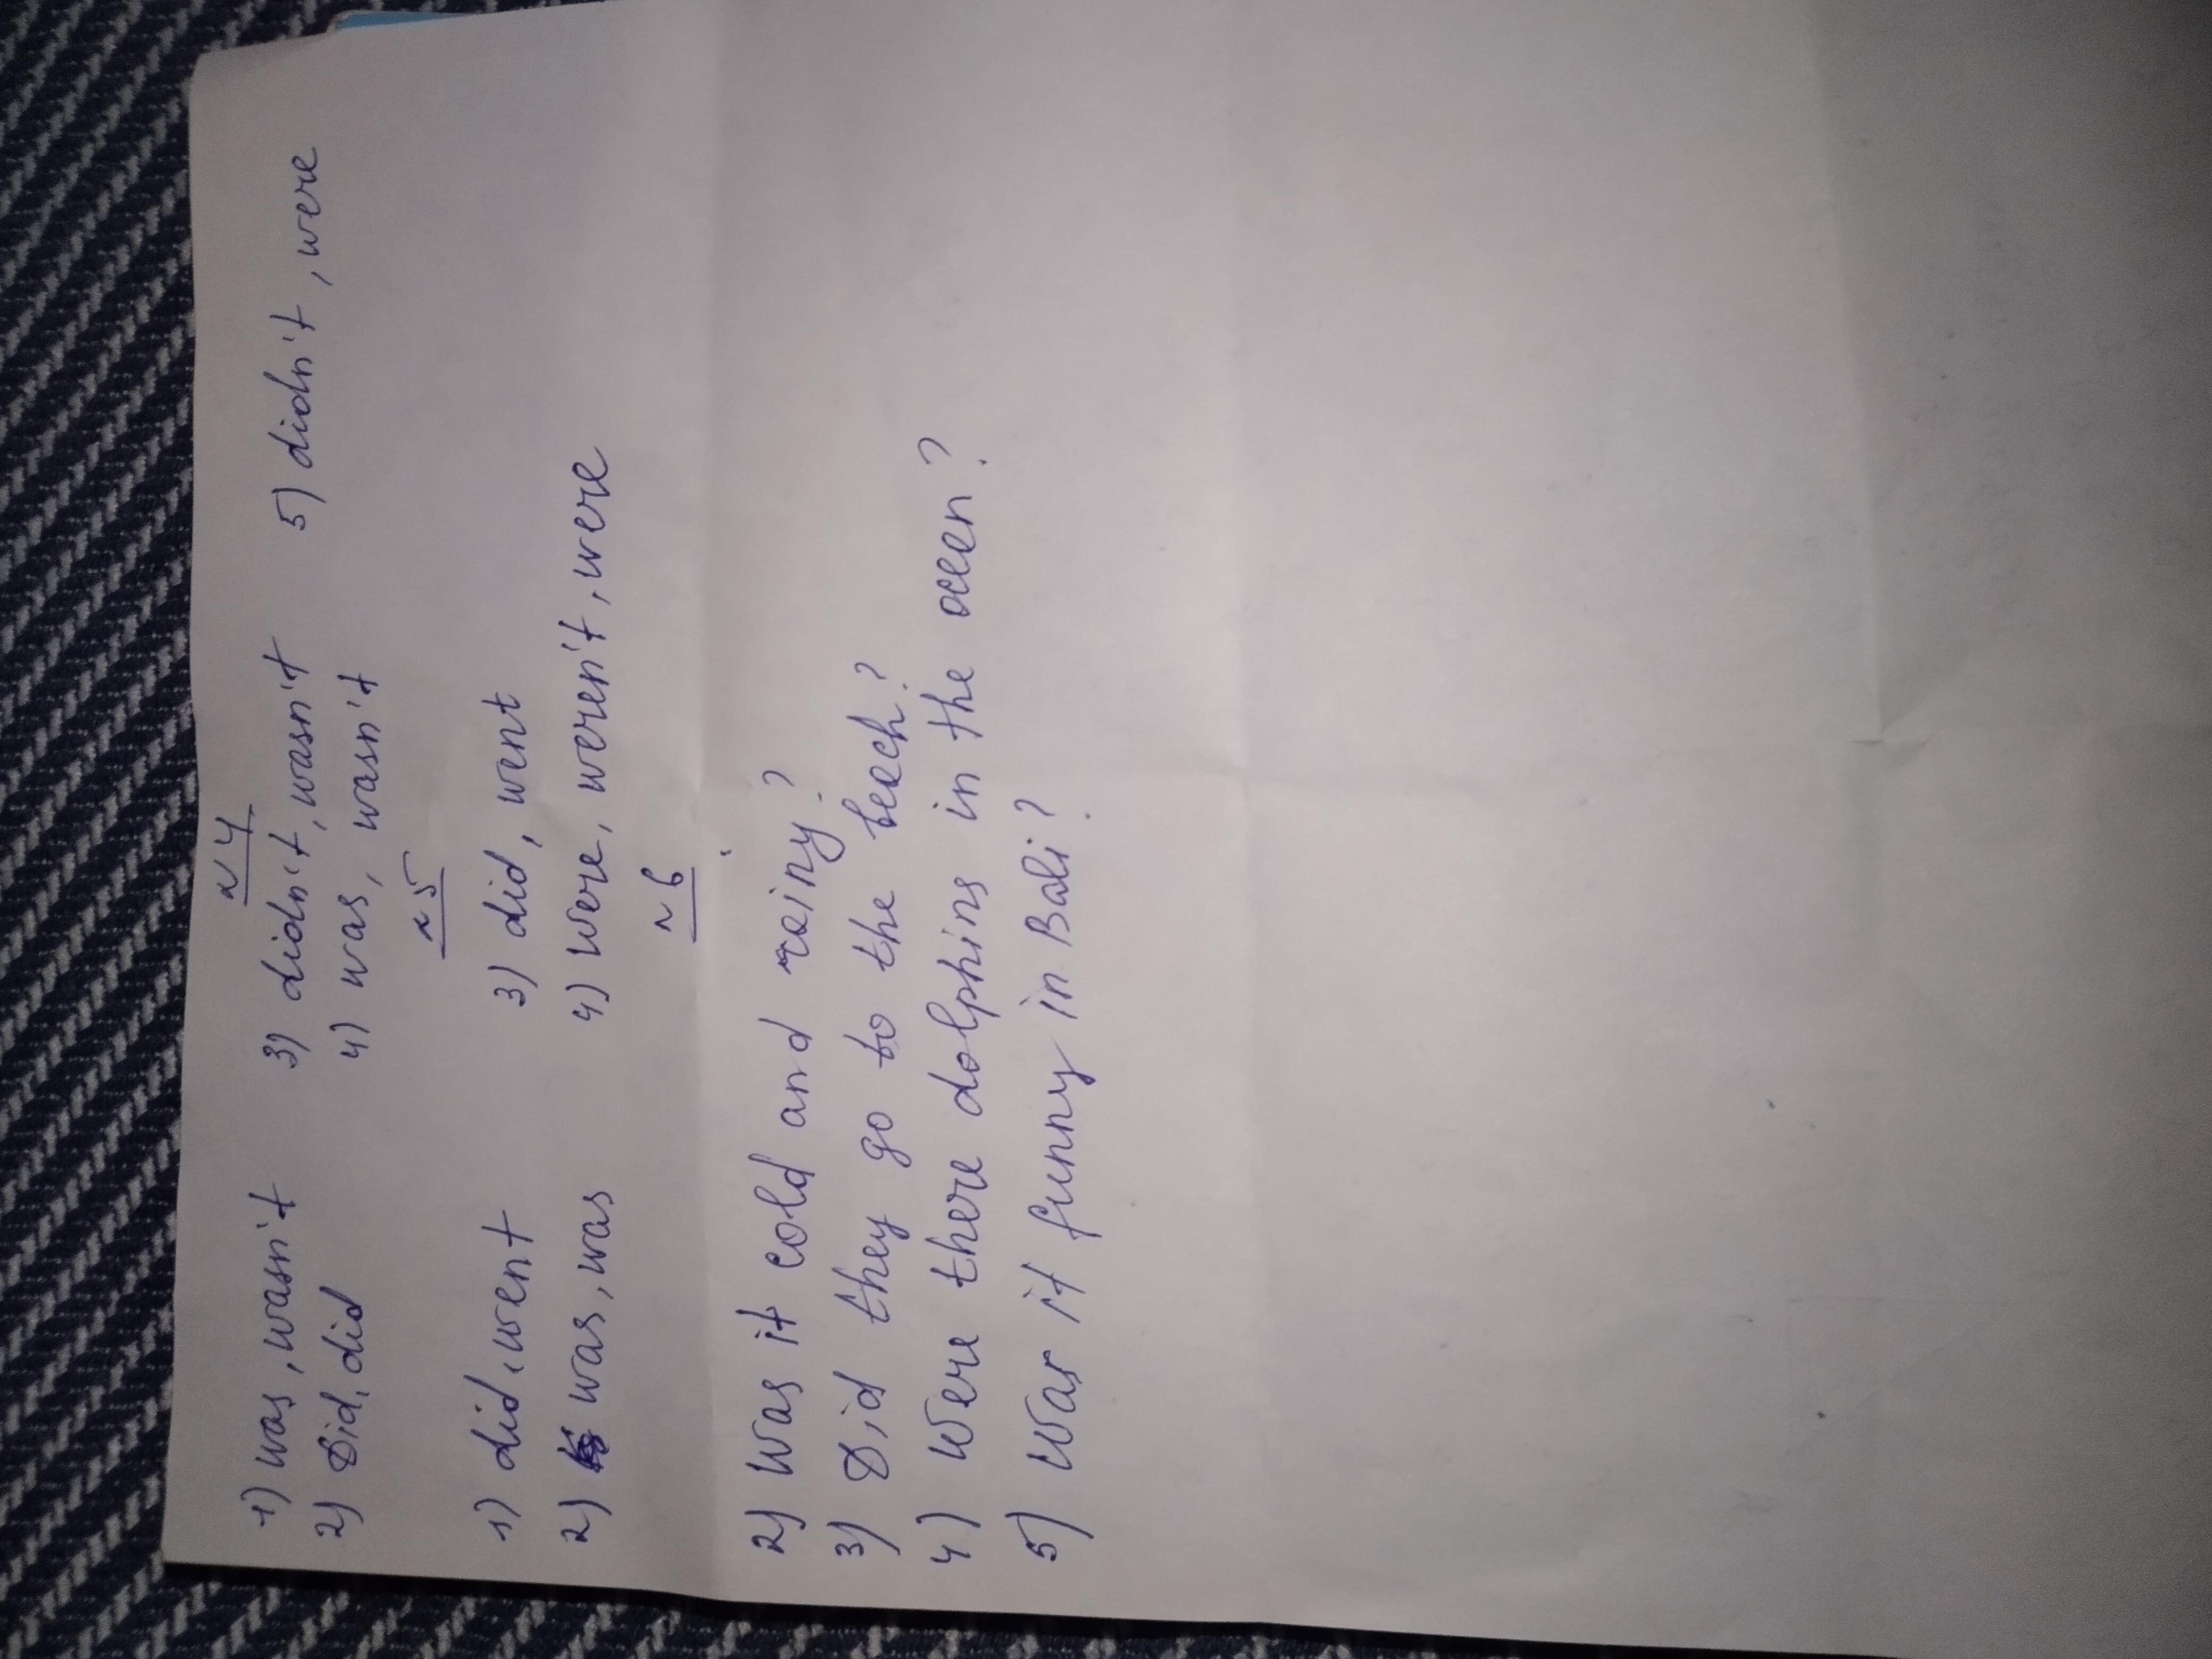 N4
1) was, wasn't 3) didn't, wasn't 5) didn't, were
2) Did, did 4) was, wasn't
N5
1) did, went 3) did, went
2) was, was 4) Were, weren't, were
N6
2) Was it cold and rainy?
3) Did they go to the beach?
4) Were there dolphins in the oceen?
5) Was it funny in Bali?